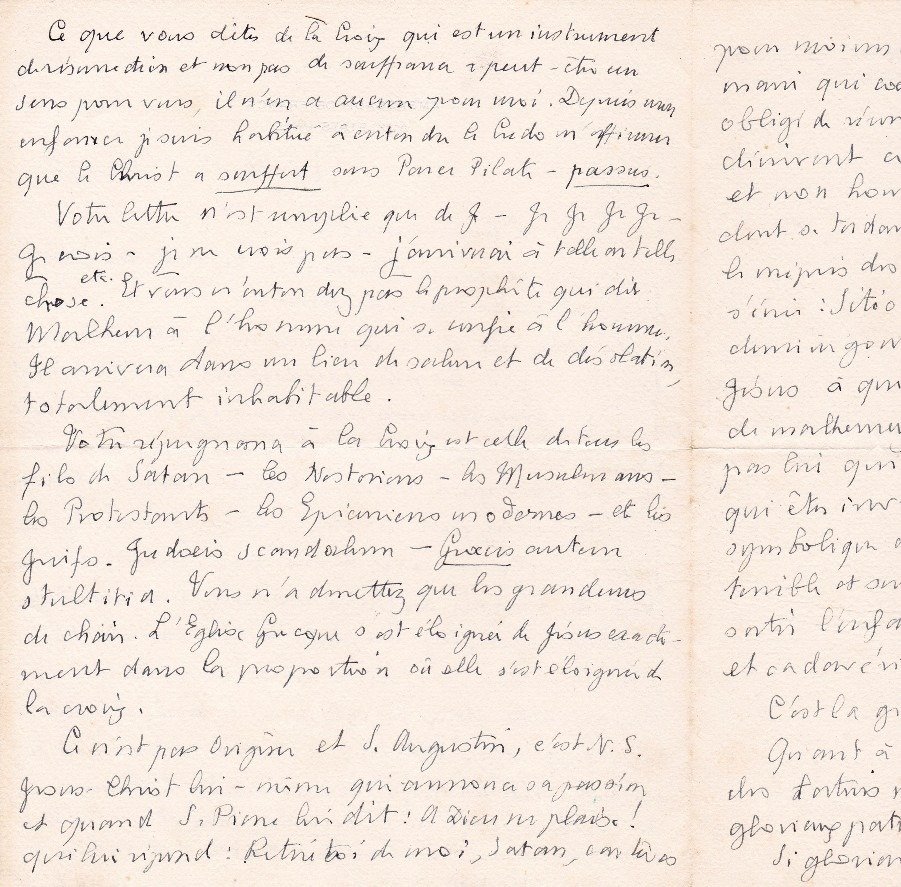 Ce que vous dites de la Croix qui est un instrument
de résurrection et non pas de souffrance a peut-être un
sens pour vous, il n'en a aucun pour moi. Depuis mon
enfance je suis habitué à entendre le Credo m'affirmer
que le Christ a souffert sous Ponce Pilate - passus.
Votre lettre n'est remplie que de Je - Je Je Je Je -
Je crois - je ne crois pas - j'arriverai à telle ou telle
chose etc. Et vous n'entendez pas le prophète qui dit
Malheur à l'homme qui se confie à l'homme.
Il arrivera dans un lieu de salure et de désolation,
totalement inhabitable.
Votre répugnance à la Croix est celle de tous les
fils de Satan - les Nestoriens - les Musulmans -
les Protestants - les Epicuriens modernes - et les
Juifs. Judaeis scandalum - Graecis autem
stultitia. Vous n'admettez que les grandeurs
de chair. L'Eglise Grecque s'est éloignée de Jésus exacte-
ment dans la proportion où elle s'est éloignée de
la croix.
Ce n'est pas Origène et S. Augustin, c'est N. S.
Jésus-Christ lui-même qui annonce sa passion
et quand S. Pierre lui dit : A Dieu ne plaise !
qui lui répond : Retire toi de moi, Satan, car tu as
pour moins
mari qui
obligé de
et non
dont se
le mépris des
Jésus à que
de malheureu
pas lui qui
qui êtes
symbolique
terrible et
sortir l'enfa
et
C'est la
Quant à
des